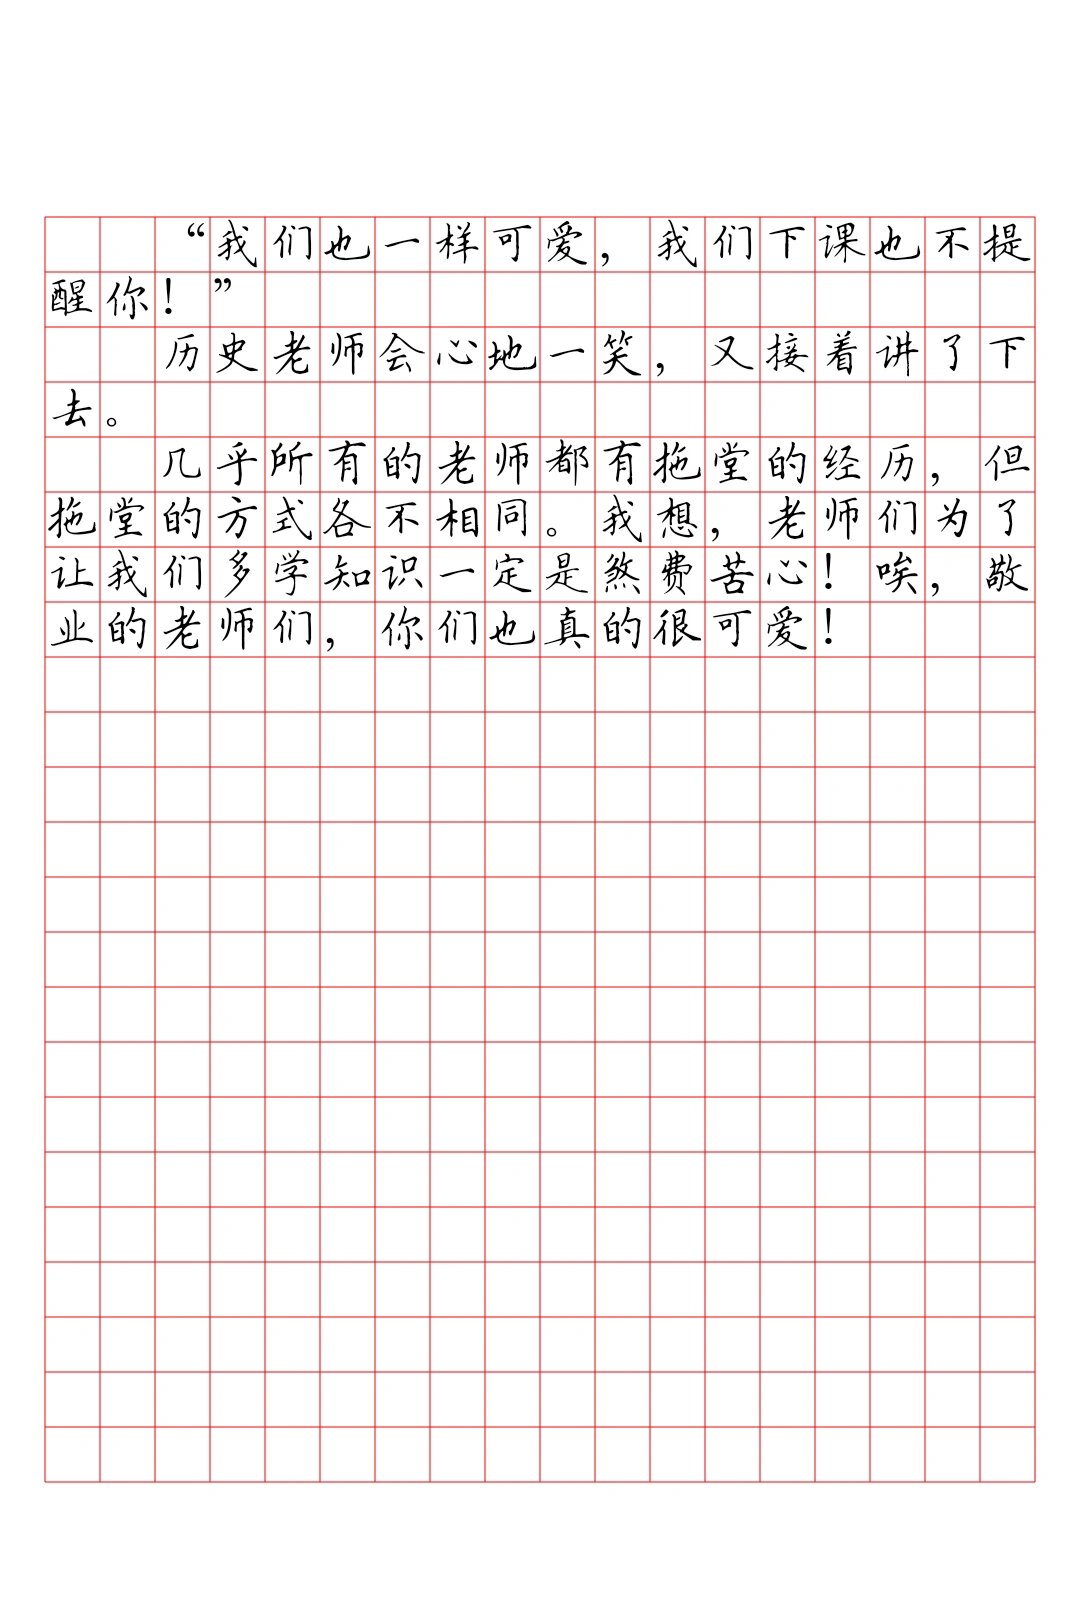 “我们也一样可爱，我们下课也不提
醒你！”
历史老师会心地一笑，又接着讲了下
去。
几乎所有的老师都有拖堂的经历，但
拖堂的方式各不相同。我想，老师们为了
让我们多学知识一定是煞费苦心！唉，敬
业的老师们，你们也真的很可爱！